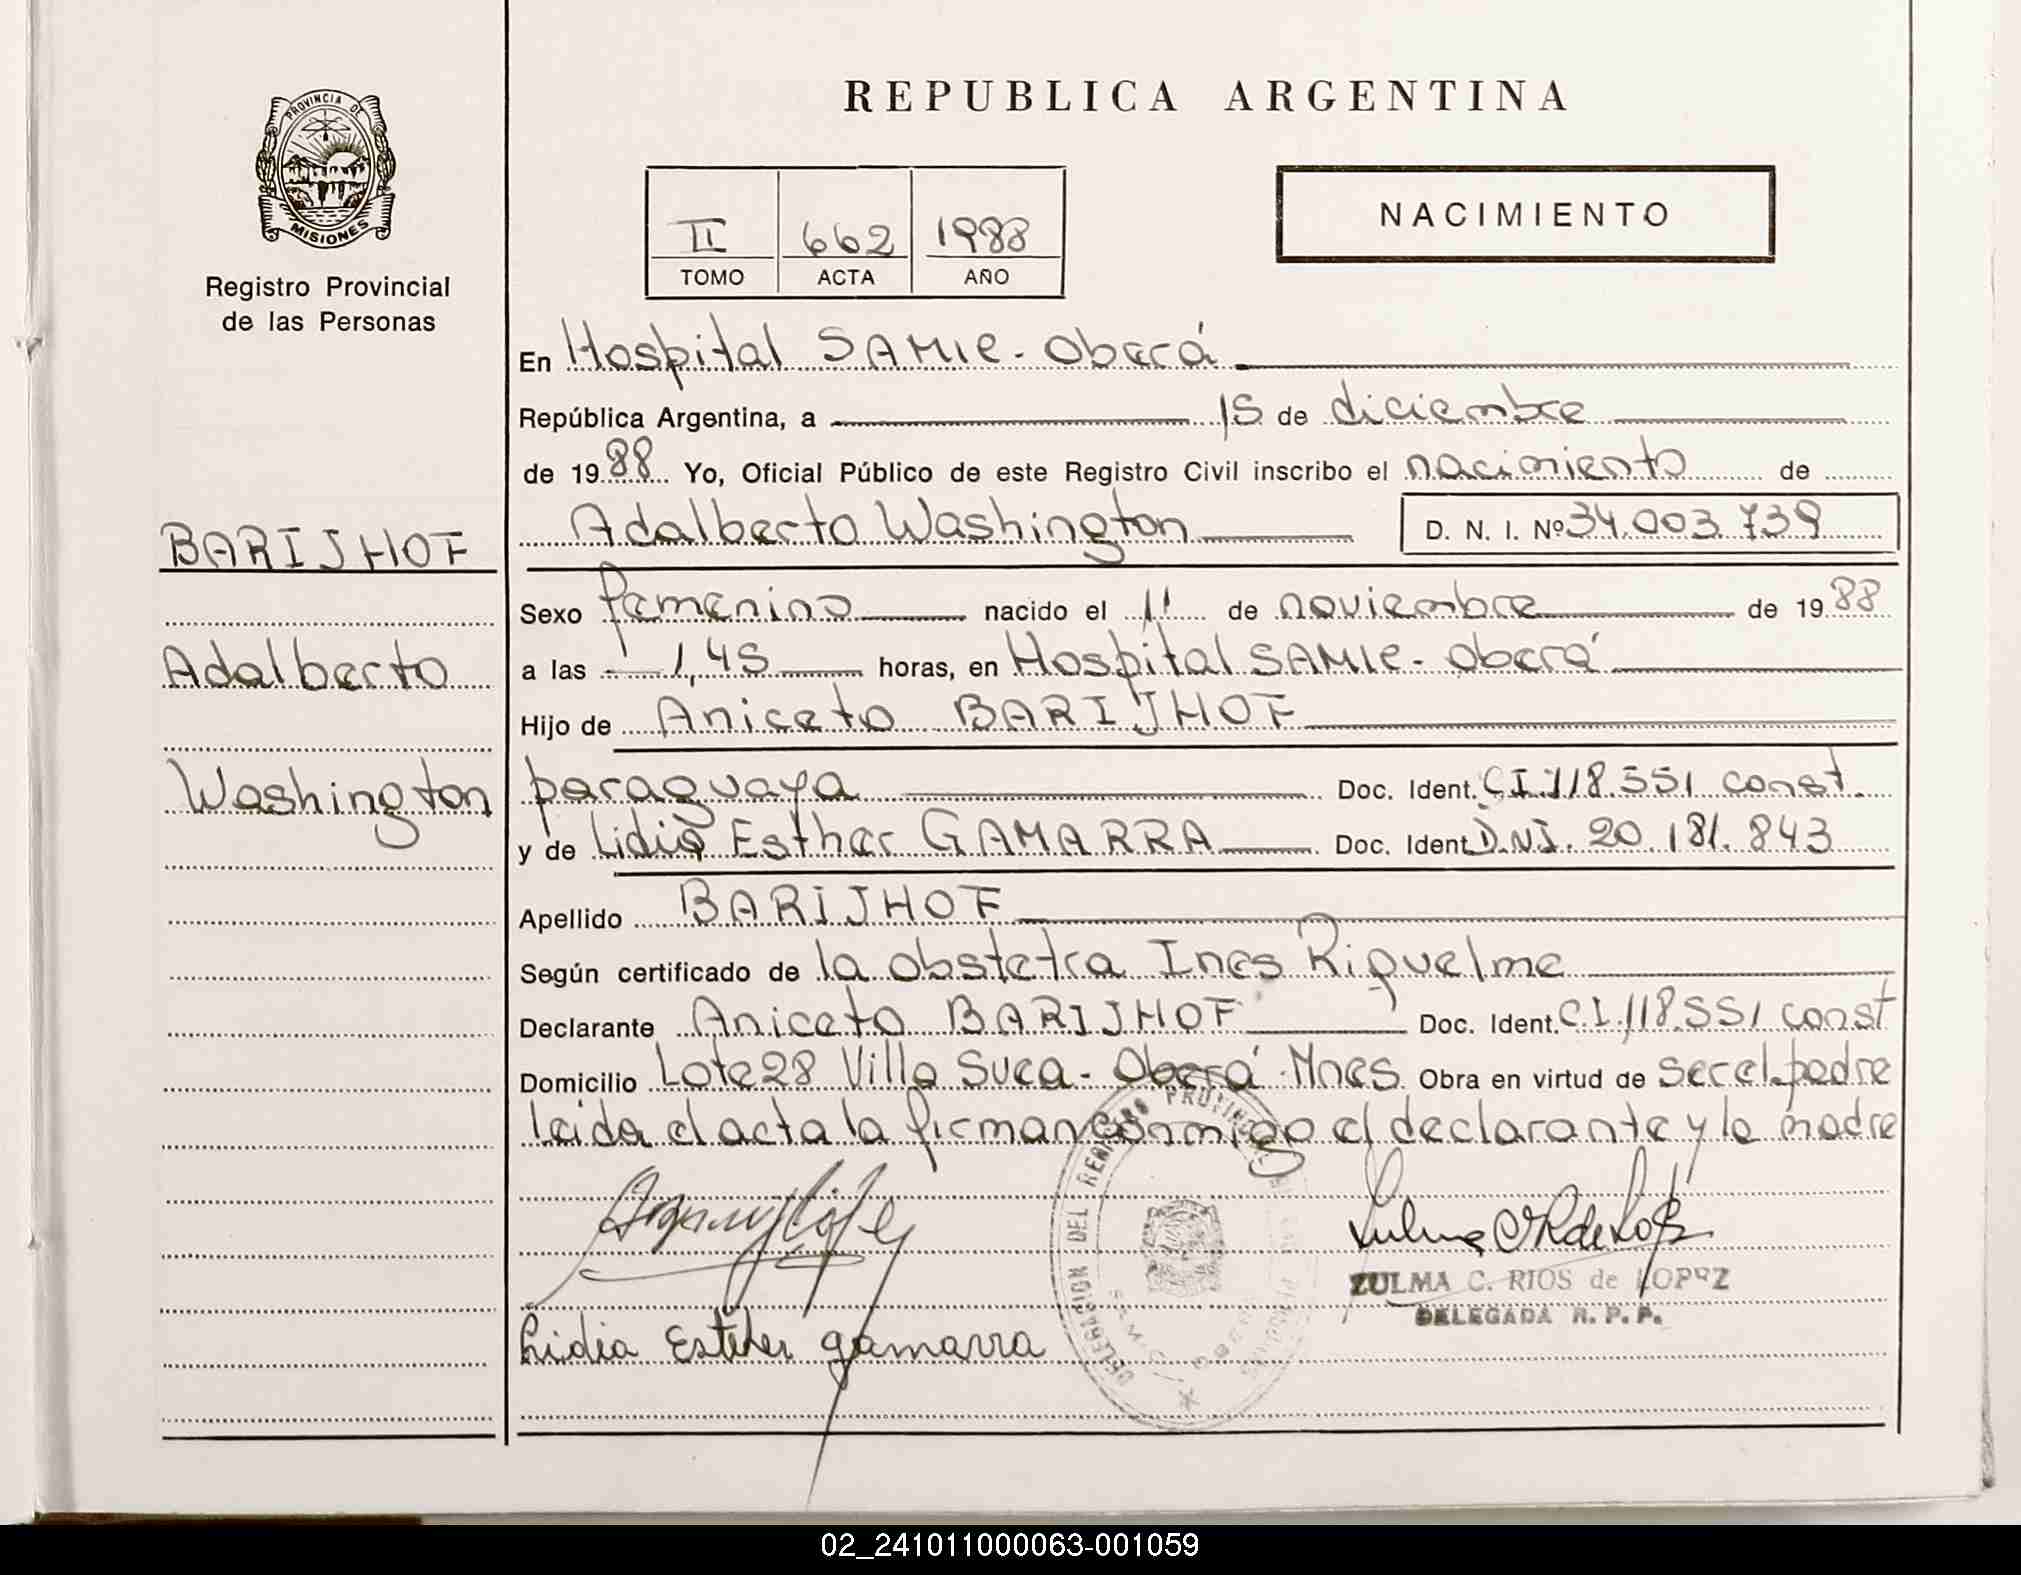 PROVINCIA DE
MISIONES
Registro Provincial
de las Personas
BARIJHOF
Adalberto
Washington
REPUBLICA ARGENTINA
II 662 1988
TOMO ACTA AÑO
NACIMIENTO
En Hospital SAMIC - Oberá
República Argentina, a 15 de diciembre
de 1988 Yo, Oficial Público de este Registro Civil inscribo el nacimiento de
Adalberto Washington D. N. I. Nº 34.003.739
Sexo femenino nacido el 11 de noviembre de 1988
a las 1,45 horas, en Hospital SAMIC - Oberá
Hijo de Aniceto BARIJHOF
paraguaya Doc. Ident. C.I. 118.551 const.
y de Lidia Esther GAMARRA Doc. Ident. D.N.I. 20.181.843
Apellido BARIJHOF
Según certificado de la obstetra Ines Riquelme
Declarante Aniceto BARIJHOF Doc. Ident. C.I. 118.551 const
Domicilio Lote 28 Villa Suea - Oberá - Mnes Obra en virtud de ser el padre
leida el acta la firman conmigo el declarante y la madre
ZULMA C. RIOS de LOPEZ
DELEGADA R. P. P.
Lidia Esther gamarra
DELEGACION DEL REGISTRO PROVINCIAL
02_241011000063-001059